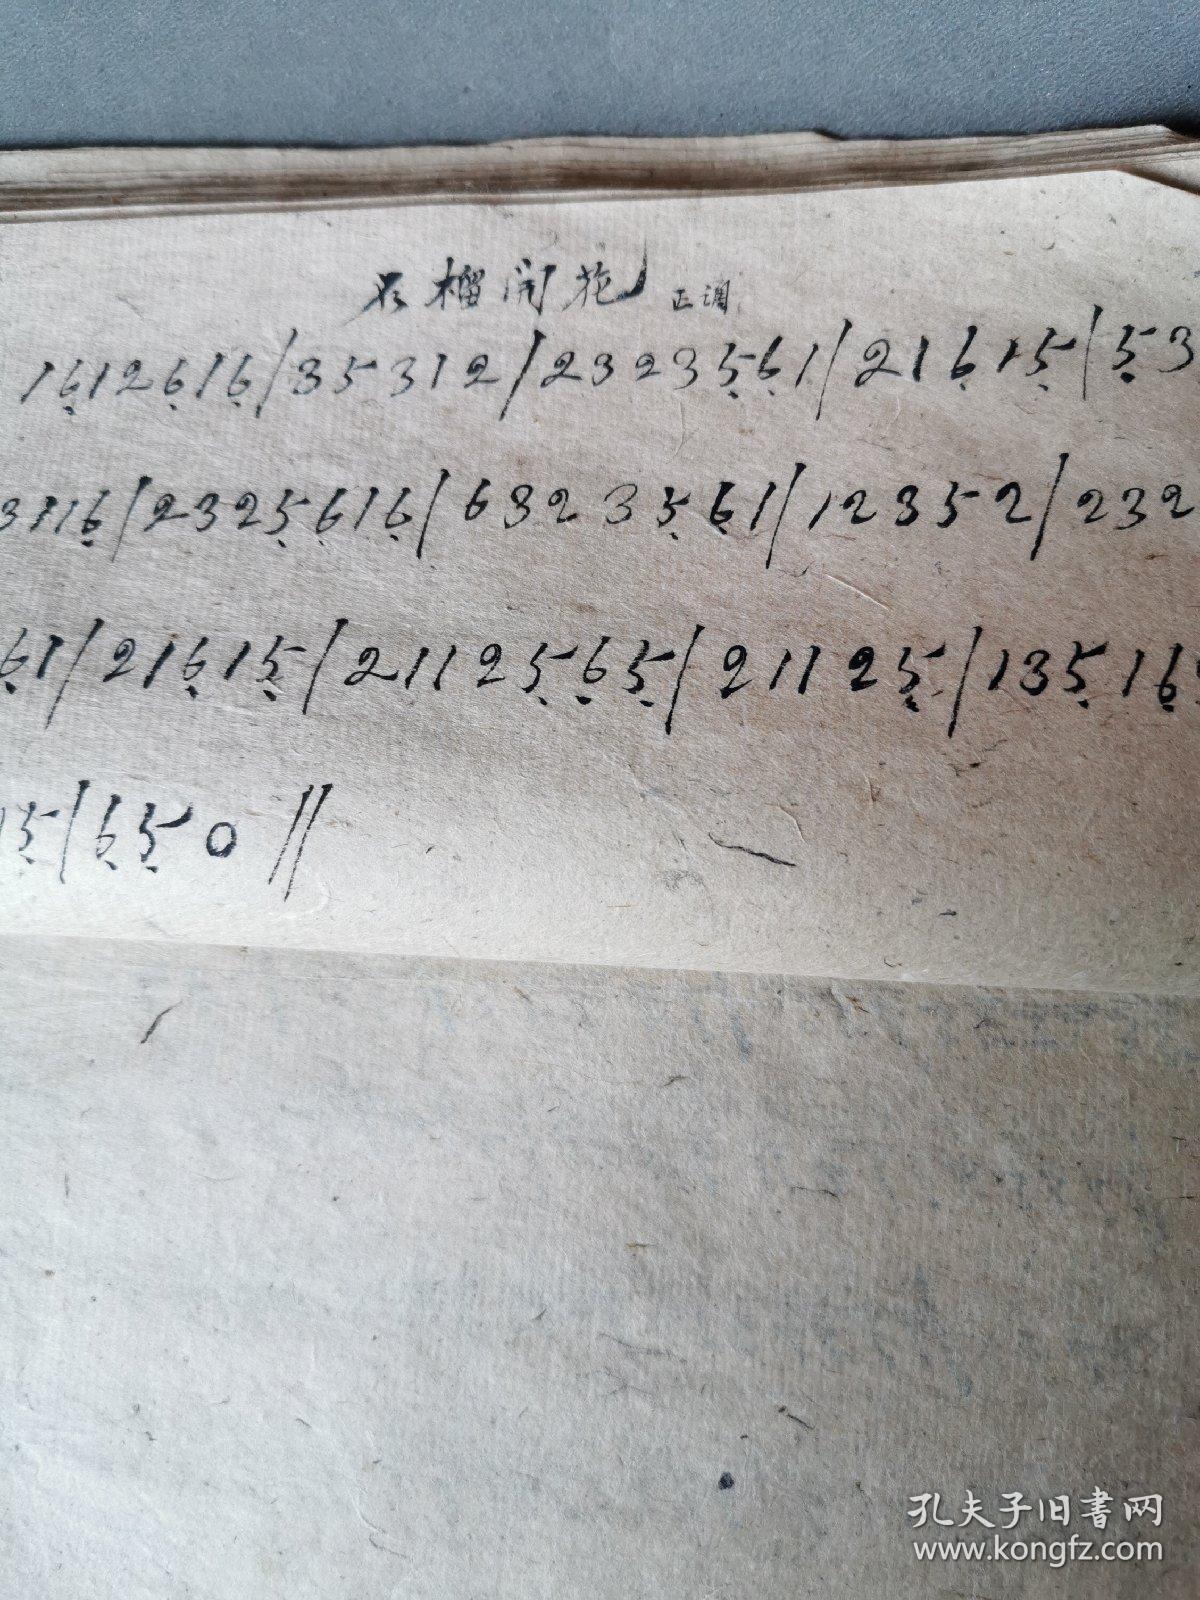 石榴開花 正调
16̣126̣16̣/35312/23235̣6̣1/216̣15̣/5̣3
3116̣/2325̣6̣16̣/63235̣6̣1/12352/232
6̣1/216̣15̣/21125̣6̣5̣/21125̣/135̣16̣
15̣/6̣5̣0//
孔夫子旧書网
www.kongfz.com